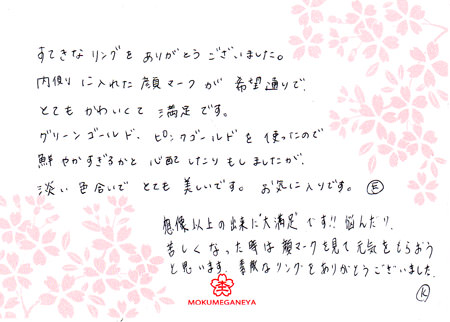 すてきなリングをありがとうございました。
内側に入れた顔マークが希望通りで、
とてもかわいくて満足です。
グリーンゴールド、ピンクゴールドを使ったので
鮮やかすぎるかと心配したりもしましたが、
淡い色合いでとても美しいです。お気に入りです。Ⓔ
想像以上の出来に"大満足"です!!悩んだり、
苦しくなった時は顔マークを見て元気をもらおう
と思います。素敵なリングをありがとうございました。
Ⓚ
MOKUMEGANEYA